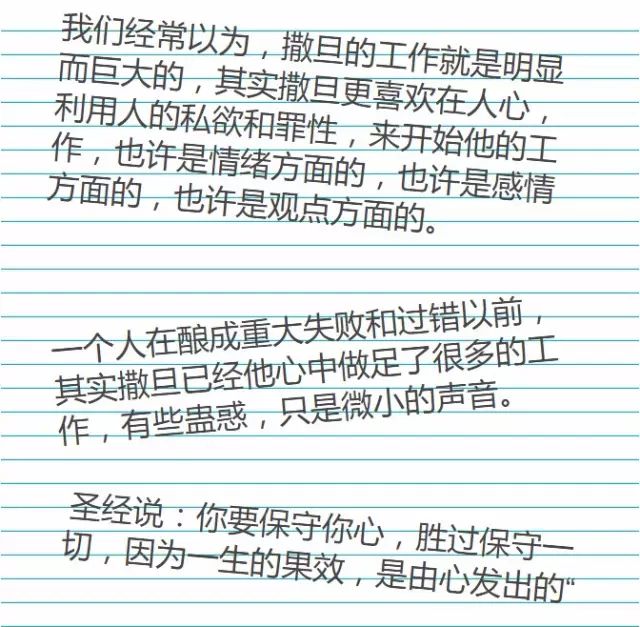 我们经常以为，撒旦的工作就是明显
而巨大的，其实撒旦更喜欢在人心，
利用人的私欲和罪性，来开始他的工
作，也许是情绪方面的，也许是感情
方面的，也许是观点方面的。
一个人在酿成重大失败和过错以前，
其实撒旦已经他心中做足了很多的工
作，有些蛊惑，只是微小的声音。
圣经说：你要保守你心，胜过保守一
切，因为一生的果效，是由心发出的“